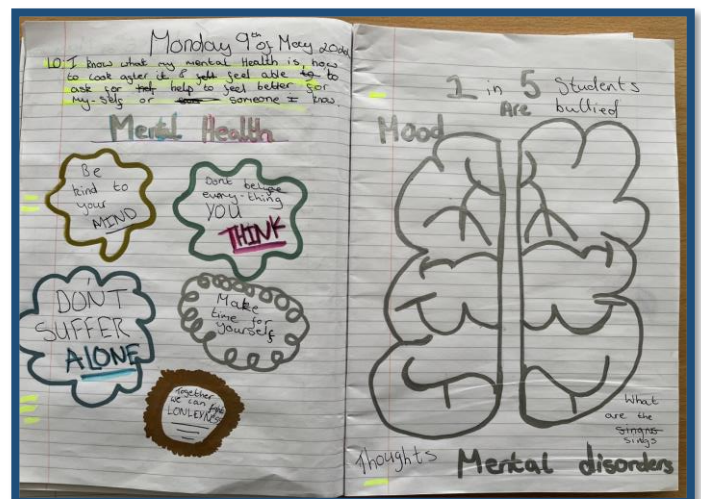 Monday 9th of May
LO: I know what my mental Health is, how
to look after it & feel able to
ask for help to feel better for
My-self or someone I know.
Mental Health
Be
kind to
your
MIND
Dont believe
every-thing
YOU
THINK
DON'T
SUFFER
ALONE
Make
time for
yourself
Together
we can fight
LONLEYNESS
1 in 5 Students
Are bullied
Mood
What
are the
sings
Thoughts Mental disorders